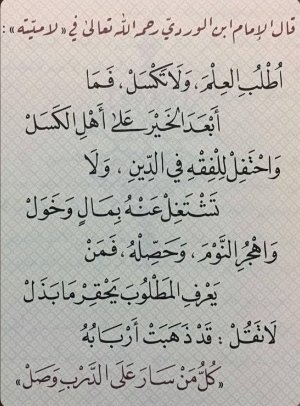 قال الإمام ابن الورديّ رحمه الله تعالى في «لاميّته» :
اُطْلُبِ العِلْمَ، وَلَا تَكْسَلْ، فَمَا
أَبْعَدَ الخَيْرَ عَلَى أَهْلِ الكَسَلْ
وَاحْتَفِلْ لِلْفِقْهِ فِي الدِّينِ ، وَلَا
تَشْتَغِلْ عَنْهُ بِمَالٍ وَخَوَلْ
وَاهْجُرِ النَّوْمَ، وَحَصِّلْهُ، فَمَنْ
يَعْرِفِ المَطْلُوبَ يَحْقِرْ مَا بَذَلْ
لَا تَقُلْ : قَدْ ذَهَبَتْ أَرْبَابُهُ
«كُلُّ مَنْ سَارَ عَلَى الدَّرْبِ وَصَلْ»